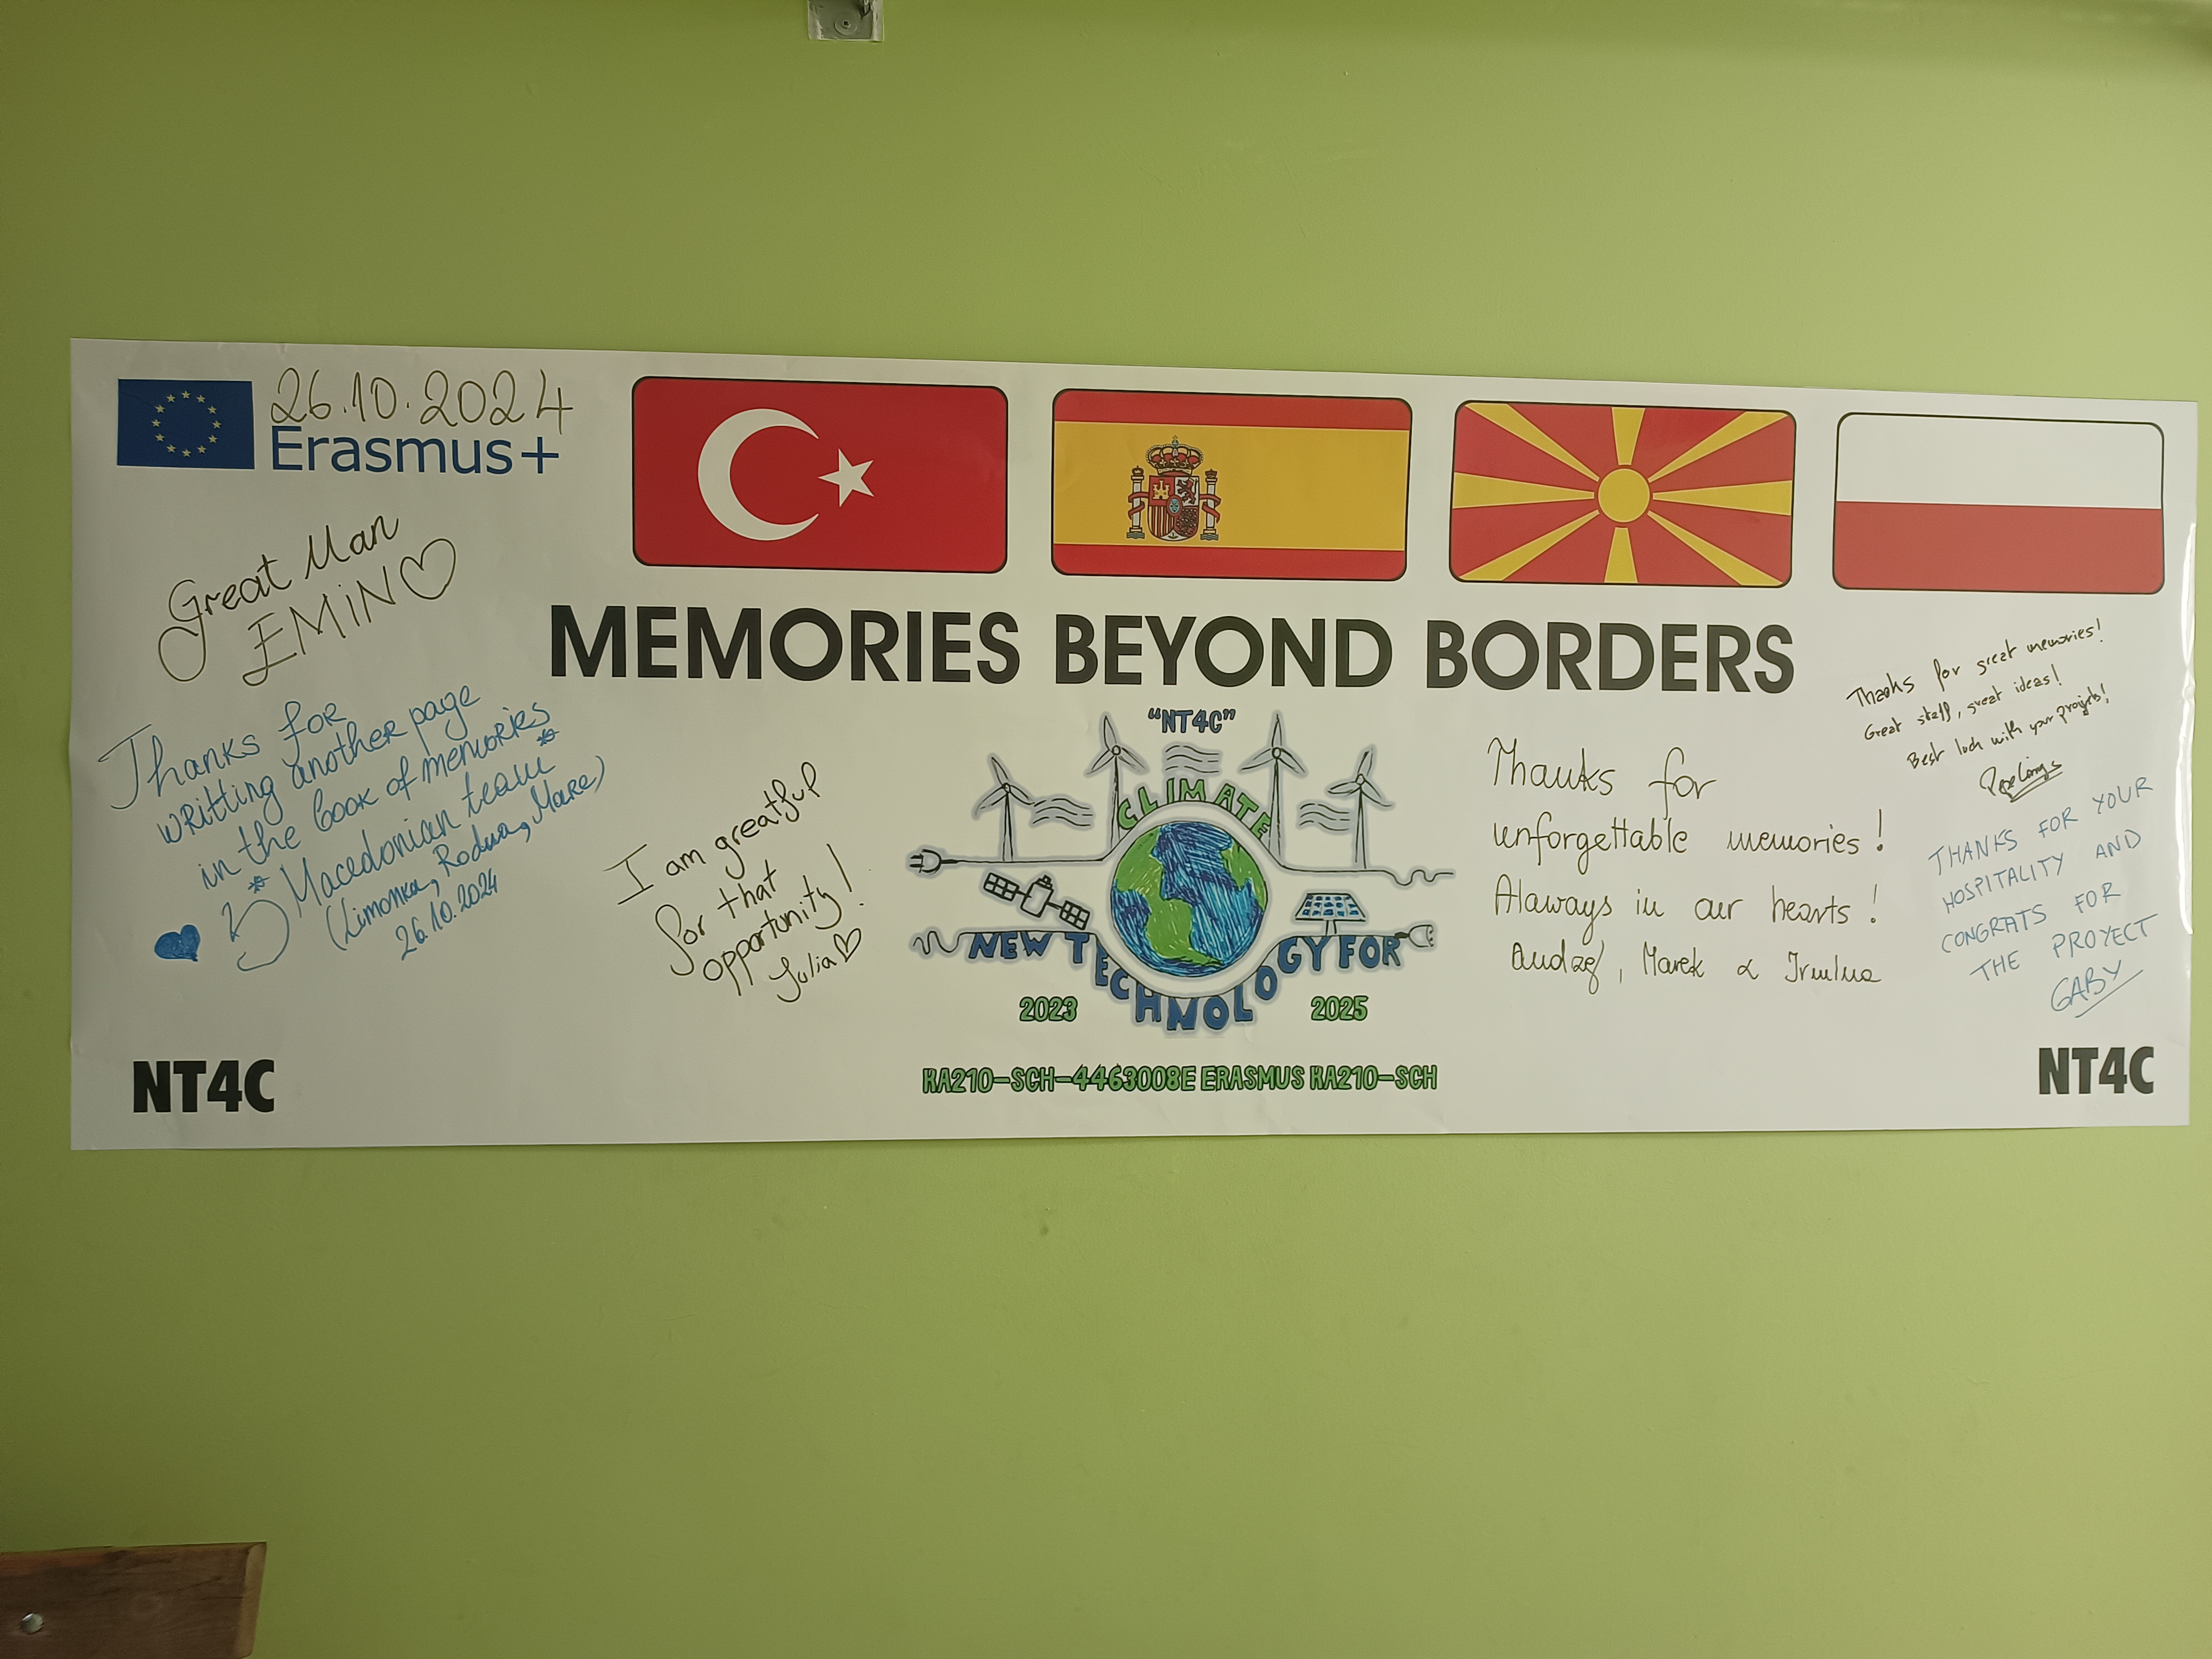 26.10.2024
Erasmus+
Great Man
EMiN
Thanks for
writting another page
in the book of memories
Macedonian team
(Limonka, Rodna, Mare)
26.10.2024
MEMORIES BEYOND BORDERS
I am greatful
for that
opportunity!
Julia
"NT4C"
CLIMATE
NEW TECHNOLOGY FOR
2023
2025
KA210-SCH-4463008E ERASMUS KA210-SCH
Thanks for
unforgettable memories!
Alaways in our hearts!
Marek & Irmina
Thanks for great memories!
Great staff, great ideas!
Best luck with your proyects!
THANKS FOR YOUR
HOSPITALITY AND
CONGRATS FOR
THE PROYECT
GABY
NT4C
NT4C